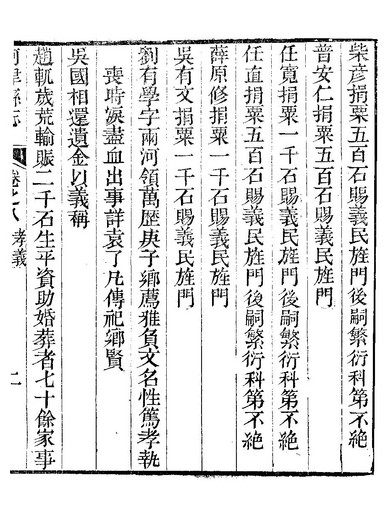 柴彦捐粟五百石賜義民旌門後嗣繁衍科第不絶
普安仁捐粟五百石賜義民旌門
任寬捐粟一千石賜義民旌門後嗣繁衍科第不絶
任直捐粟五百石賜義民旌門後嗣繁衍科第不絶
薛原修捐粟一千石賜義民旌門
吳有文捐粟一千石賜義民旌門
劉有學字兩河領萬歷庚子鄉薦雅負文名性篤孝執
喪時淚盡血出事詳袁了凡傳祀鄉賢
吳國相還遺金以義稱
趙軏歲荒輸賑二千石生平資助婚葬者七十餘家事
津縣志
卷之八
孝義
二